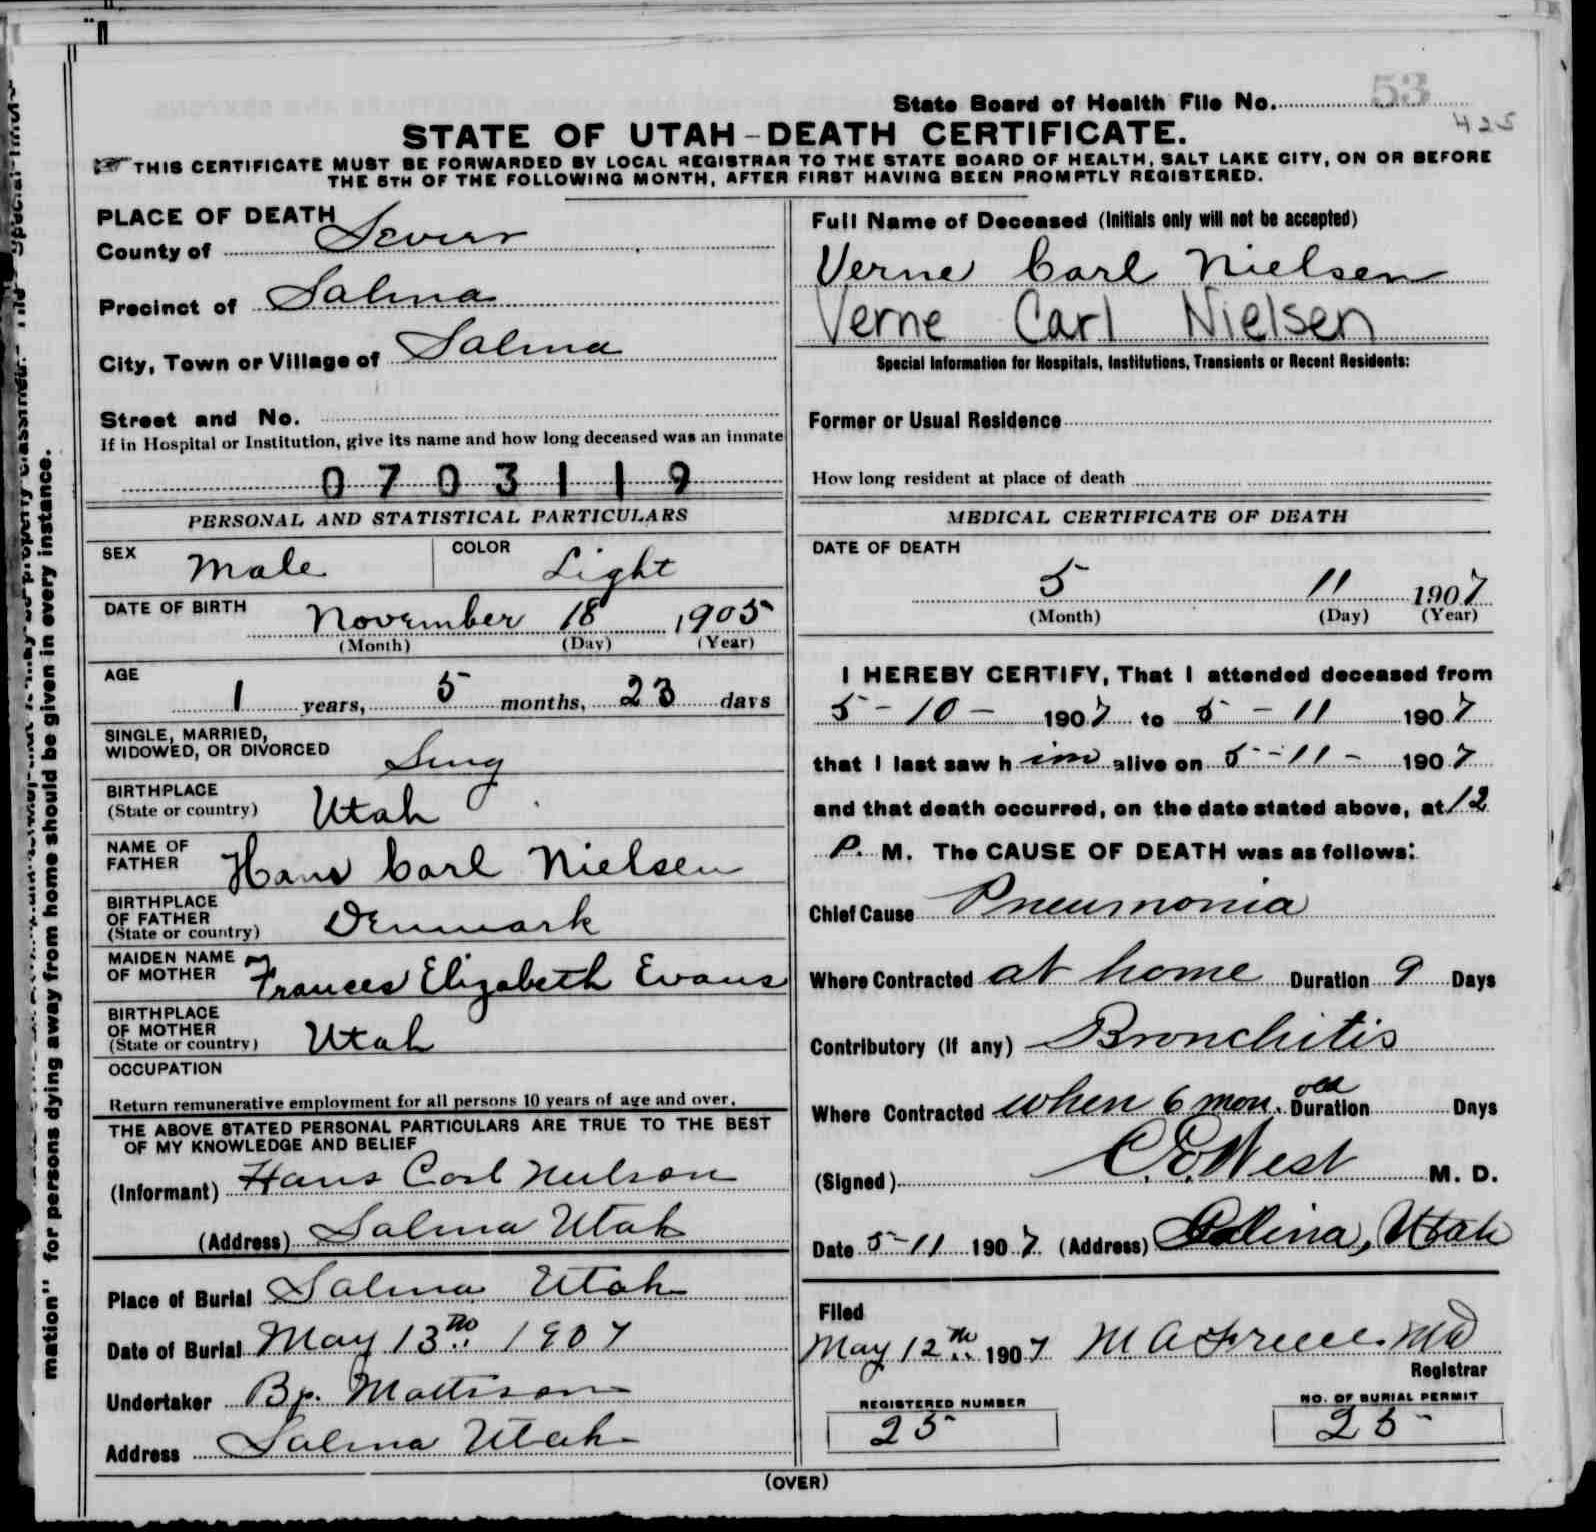 53
State Board of Health File No.
425
STATE OF UTAH-DEATH CERTIFICATE.
THIS CERTIFICATE MUST BE FORWARDED BY LOCAL REGISTRAR TO THE STATE BOARD OF HEALTH, SALT LAKE CITY, ON OR BEFORE
THE 5TH OF THE FOLLOWING MONTH, AFTER FIRST HAVING BEEN PROMPTLY REGISTERED.
PLACE OF DEATH
County of Sevier
Precinct of Salina
City, Town or Village of Salina
Street and No.
If in Hospital or Institution, give its name and how long deceased was an inmate
0703119
Full Name of Deceased (Initials only will not be accepted)
Verne Carl Nielsen
Verne Carl Nielsen
Special Information for Hospitals, Institutions, Transients or Recent Residents:
Former or Usual Residence
How long resident at place of death
PERSONAL AND STATISTICAL PARTICULARS
SEX Male COLOR Light
DATE OF BIRTH
November 18 1905
(Month) (Day) (Year)
AGE
1 years, 5 months, 23 days
SINGLE, MARRIED,
WIDOWED, OR DIVORCED Sing
BIRTHPLACE
(State or country) Utah
NAME OF
FATHER Hans Carl Nielsen
BIRTHPLACE
OF FATHER
(State or country) Denmark
MAIDEN NAME
OF MOTHER Frances Elizabeth Evans
BIRTHPLACE
OF MOTHER
(State or country) Utah
OCCUPATION
Return remunerative employment for all persons 10 years of age and over.
THE ABOVE STATED PERSONAL PARTICULARS ARE TRUE TO THE BEST
OF MY KNOWLEDGE AND BELIEF
(Informant) Hans Carl Neilson
(Address) Salina Utah
Place of Burial Salina Utah
Date of Burial May 13th 1907
Undertaker Bp. Mattison
Address Salina Utah
MEDICAL CERTIFICATE OF DEATH
DATE OF DEATH
5 11 1907
(Month) (Day) (Year)
I HEREBY CERTIFY, That I attended deceased from
5-10- 1907 to 5-11 1907
that I last saw him alive on 5-11- 1907
and that death occurred, on the date stated above, at 12
P. M. The CAUSE OF DEATH was as follows:
Chief Cause Pneumonia
Where Contracted at home Duration 9 Days
Contributory (if any) Bronchitis
Where Contracted when 6 mon. old Duration Days
(Signed) C. E. West M. D.
Date 5-11 1907 (Address) Salina, Utah
Filed
May 12th 1907 M A Md
Registrar
REGISTERED NUMBER
25
NO. OF BURIAL PERMIT
25
(OVER)
mation" for persons dying away from home should be given in every instance.